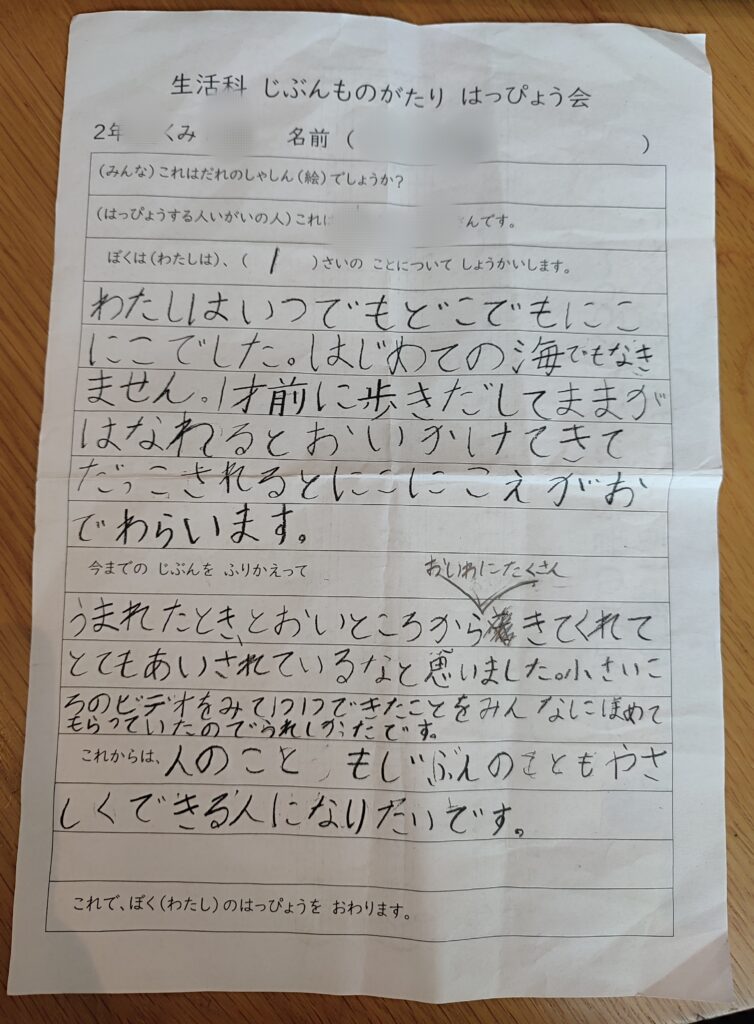 生活科 じぶんものがたり はっぴょう会
2年 くみ 名前 ( )
(みんな)これはだれのしゃしん(絵)でしょうか?
(はっぴょうする人いがいの人)これは んです。
ぼくは(わたしは)、( 1 )さいの ことについて しょうかいします。
わたしはいつでもどこでもにこ
にこでした。はじめての海でもなき
ません。1才前に歩きだしてままが
はなれるとおいかけてきて
だっこされるとにこにこえがお
でわらいます。
今までの じぶんを ふりかえって
おいわいにたくさん
うまれたとき、とおいところからきてくれて
とてもあいされているなと思いました。小さいこ
ろのビデオをみて1つ1つできたことをみんなにほめて
もらっていたのでうれしかったです。
これからは、人のこともじぶんのこともやさ
しくできる人になりたいです。
これで、ぼく(わたし)のはっぴょうを おわります。